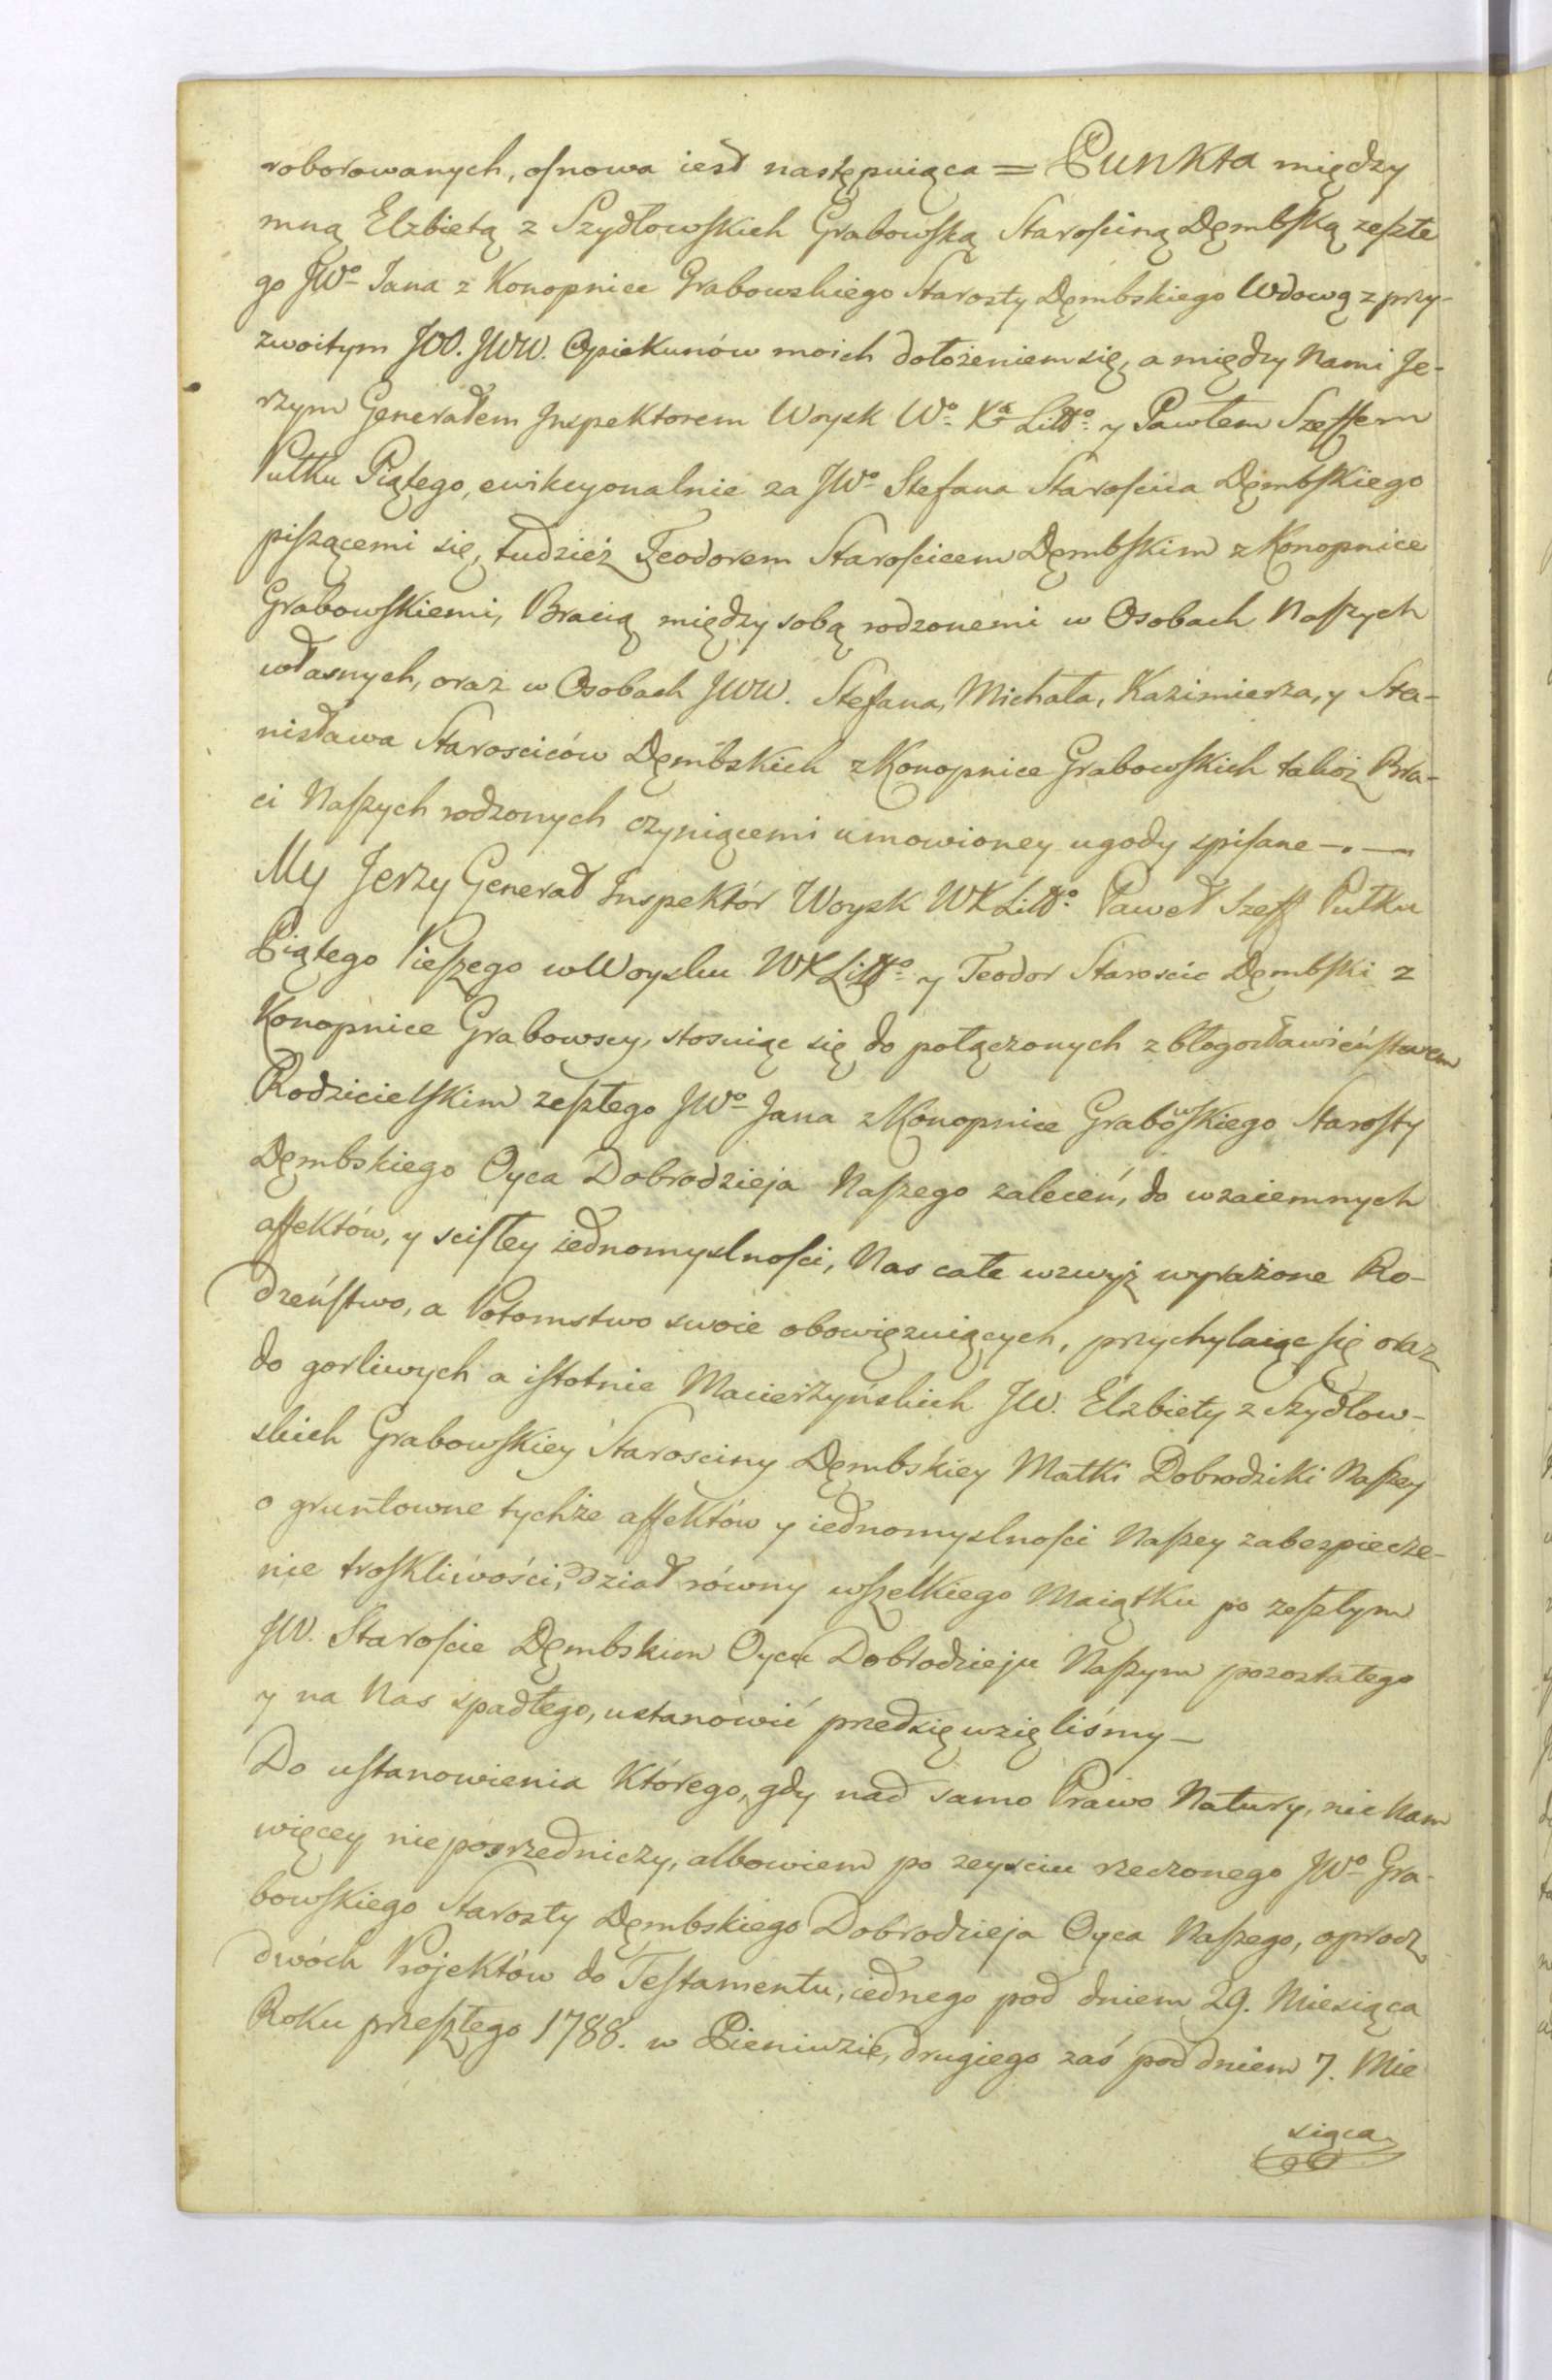 roborowanych, osnowa iest następuiąca = Punkta między
mną Elzbietą z Szydłowskich Grabowską Starościną Dęmbską zeszłe
go JWo Jana z Konopnice Grabowskiego Starosty Dęmbskiego Wdową z przy-
zwoitym JOO. JWW. Opiekunów moich dołożeniem się, a między Nami Je-
rzym Generałem Inspektorem Woysk Wo Xa Litto y Pawłem Szeffem
Pułku Piątego, ewikcyonalnie za JWo Stefana Starościca Dęmbskiego
piszącemi się, tudzież Teodorem Starościcem Dęmbskim z Konopnice
Grabowskiemi, Bracią między sobą rodzonemi w Osobach Naszych
własnych, oraz w Osobach JWW. Stefana, Michała, Kazimierza, y Sta-
nisława Starosciców Dęmbskich z Konopnice Grabowskich takoż Bra-
ci Naszych rodzonych czyniącemi umowioney ugody spisane —.—
My Jerzy Generał Inspektór Woysk WXLitto Paweł Szeff Pułku
Piątego Pieszego w Woysku WXLitto y Teodor Staroscic Dęmbski z
Konopnice Grabowscy, stosuiąc się do połączonych z błogosławieństwem
Rodzicielskim zeszłego JWo Jana z Konopnice Grabowskiego Starosty
Dęmbskiego Oyca Dobrodzieja Naszego zaleceń, do wzaiemnych
affektów, y scisłey iednomyslności, Nas całe wzwyż wyrażone Ro-
dzeństwo, a Potomstwo swoie obowięzuiących, przychylaiąc się oraz
do gorliwych a istotnie Macierzyńskich JW. Elzbiety z Szydłow-
skich Grabowskiey Starosciny Dęmbskiey Matki Dobrodziki Naszey
o gruntowne tychże affektów y iednomyslności Naszey zabezpiecze-
nie troskliwości, dział równy wszelkiego Maiątku po zeszłym
JW. Staroście Dęmbskim Oycu Dobrodzieju Naszym pozostałego
y na Nas spadłego, ustanowić przedsięwzięliśmy —
Do ustanowienia którego, gdy nad samo Prawo Natury, nic Nam
więcey nie posrzedniczy, albowiem po zeysciu rzeczonego JWo Gra-
bowskiego Starosty Dęmbskiego Dobrodzieja Oyca Naszego, oprócz
dwóch Projektów do Testamentu, iednego pod dniem 29. Miesiąca
Roku przeszłego 1788. w Pieniuzie, drugiego zaś pod dniem 7. Mie
siąca